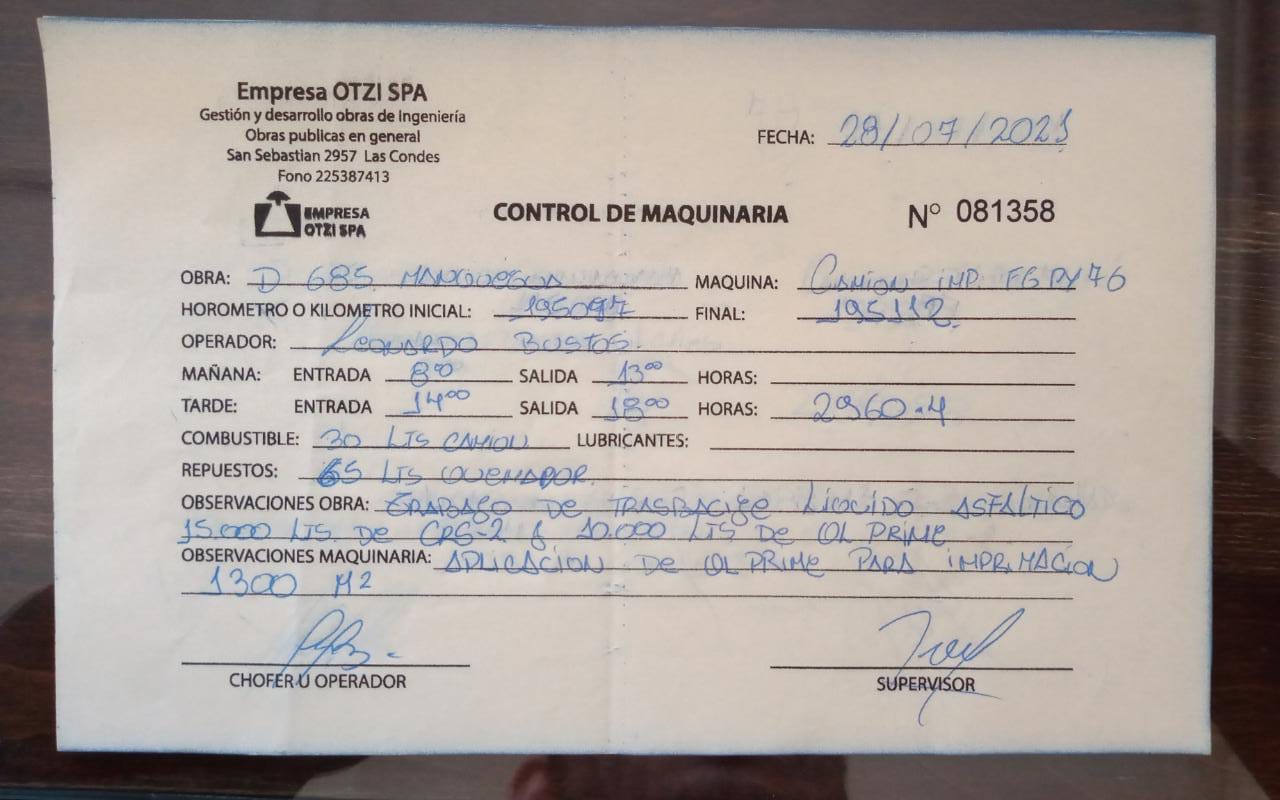 Empresa OTZI SPA
Gestión y desarrollo obras de Ingeniería
Obras publicas en general
San Sebastian 2957 Las Condes
Fono 225387413
FECHA: 28/07/2021
EMPRESA
OTZI SPA
CONTROL DE MAQUINARIA
N° 081358
OBRA: D 685 MANQUEGUA MAQUINA: CAMION IMP. FGPY76
HOROMETRO O KILOMETRO INICIAL: 195097 FINAL: 195112.
OPERADOR: LEONARDO BUSTOS
MAÑANA: ENTRADA 8⁰⁰ SALIDA 13⁰⁰ HORAS:
TARDE: ENTRADA 14⁰⁰ SALIDA 18⁰⁰ HORAS: 2960.4
COMBUSTIBLE: 30 LTS CAMION LUBRICANTES:
REPUESTOS: 65 LTS QUEMADOR.
OBSERVACIONES OBRA: DE LIQUIDO ASFALTICO
15.000 LTS. DE CRS-2 y 10.000 LTS DE QL PRIME
OBSERVACIONES MAQUINARIA: APLICACION DE QL PRIME PARA IMPRIMACION
1300 M2
CHOFER U OPERADOR
SUPERVISOR